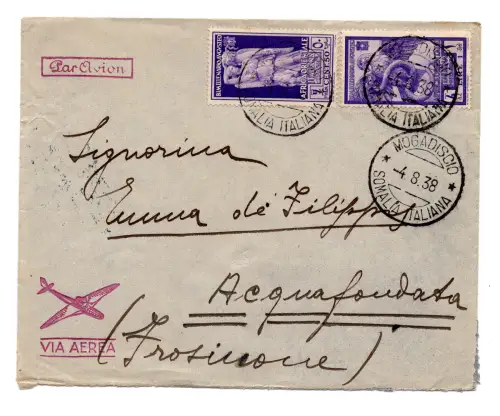 Par Avion
BIMILLENARIO AUGUSTEO
AFRICA ORIENTALE
ITALIANA
CENT. 50
SOMALIA ITALIANA
SOMALIA ITALIANA
MOGADISCIO
-4.8.38
SOMALIA ITALIANA
Signorina
Emma de Filippis
Acquafondata
(Frosinone)
VIA AEREA